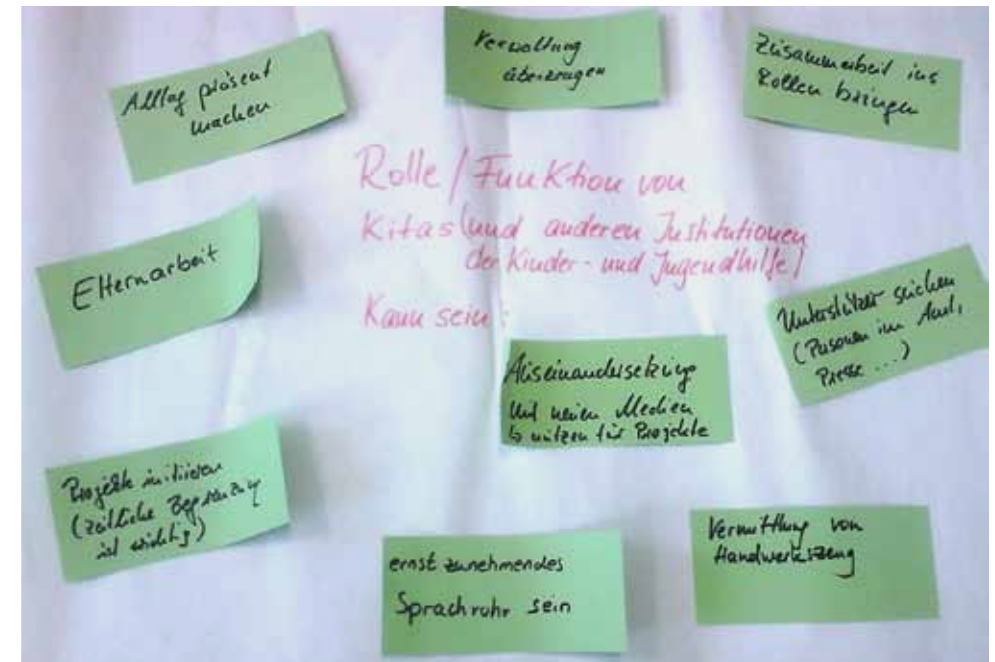 Alltag präsent
machen
Verwaltung
überzeugen
Zusammenarbeit ins
Rollen bringen
Rolle / Funktion von
Kitas (und anderen Institutionen
der Kinder- und Jugendhilfe)
Kann sein:
Elternarbeit
Unterstützer suchen
(Personen im Amt,
Presse ...)
Auseinandersetzung
mit neuen Medien
↳ nützen für Projekte
Projekte initiieren
(zeitliche Begrenzung
ist wichtig)
ernst zunehmendes
Sprachrohr sein
Vermittlung von
Handwerkszeug